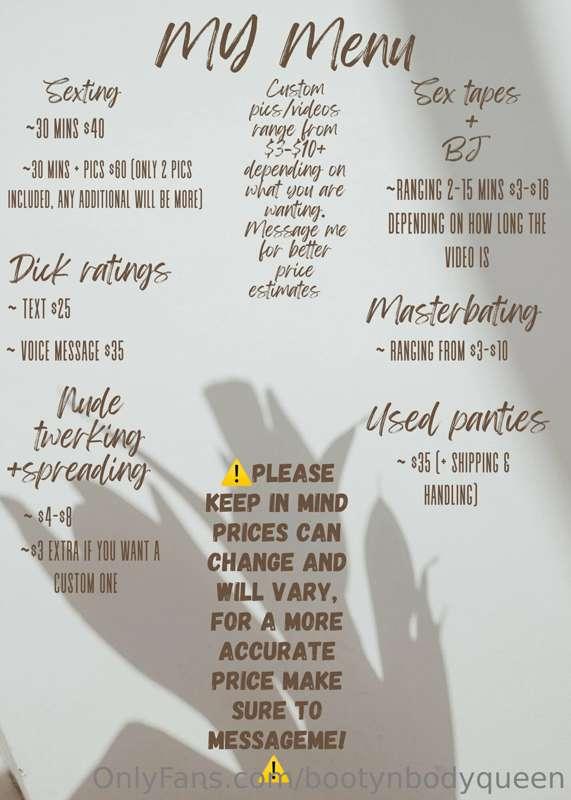 My Menu
Sexting
~30 MINS $40
~30 MINS + PICS $60 (ONLY 2 PICS
INCLUDED, ANY ADDITIONAL WILL BE MORE)
Dick ratings
~ TEXT $25
~ VOICE MESSAGE $35
Nude
twerking
+spreading
~ $4-$8
~$3 EXTRA IF YOU WANT A
CUSTOM ONE
Custom
pics/videos
range from
$3-$10+
depending on
what you are
wanting.
Message me
for better
price
estimates
⚠️PLEASE
KEEP IN MIND
PRICES CAN
CHANGE AND
WILL VARY,
FOR A MORE
ACCURATE
PRICE MAKE
SURE TO
MESSAGEME!
⚠️
Sex tapes
+
BJ
~RANGING 2-15 MINS $3-$16
DEPENDING ON HOW LONG THE
VIDEO IS
Masterbating
~ RANGING FROM $3-$10
Used panties
~ $35 (+ SHIPPING &
HANDLING)
OnlyFans.com/bootynbodyqueen